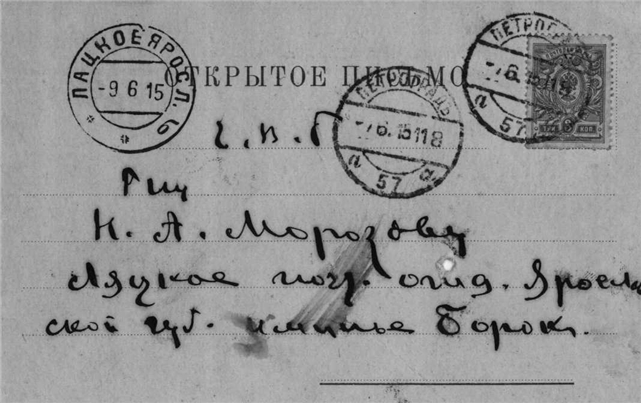 ЛАЦКОЕ ЯРОСЛ.
-9 6 15
ОТКРЫТОЕ ПИСЬМО
ПЕТРОГРАДЪ
6.15 11 8
а 57 а
ПЕТРОГР
6.15 11 8
а 57
3
ТРИ КОП.
Е. В. Б
Н. А. Морозову
Лацкое почт. отд. Яросла
ской губ. именье Борок.